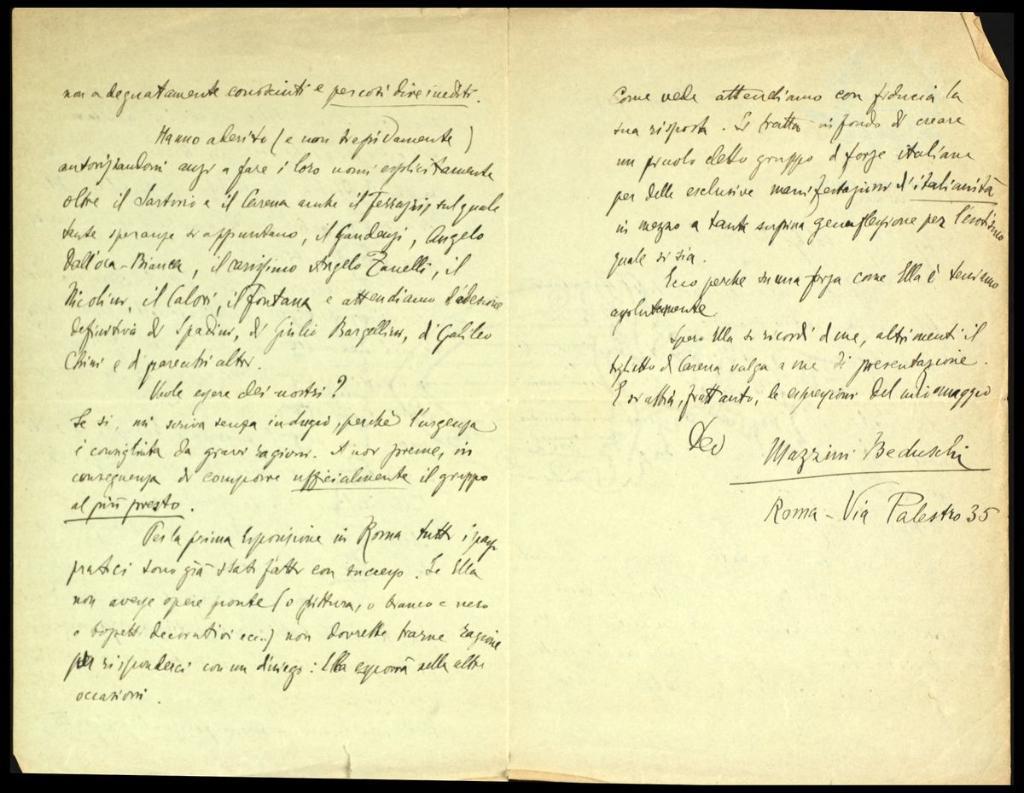 non adeguatamente conosciuti e per così dire inediti.
Hanno aderito (e non tiepidamente)
autorizzandomi anzi a fare i loro nomi esplicitamente
oltre il Sartorio e il Carena anche il Ferrazzi, sul quale
tante speranze si appuntano, il Gaudenzi, Angelo
Dall'Oca-Bianca, il carissimo Angelo Zanelli, il
Nicolini, il Calori, il Fontana e attendiamo l'adesione
definitiva di Spadini, di Giulio Bargellini, di Galileo
Chini e di parecchi altri.
Vuole essere dei nostri?
Se sì, mi scriva senza indugio, perchè l'urgenza
è consigliata da gravi ragioni. A noi preme, in
conseguenza di comporre ufficialmente il gruppo
al più presto.
Per la prima Esposizione in Roma tutti i passi
pratici sono già stati fatti con successo. Se Ella
non avesse opere pronte (o pittura, o bianco e nero
o bozzetti decorativi ecc..) non dovrebbe trarne ragione
per risponderci con un diniego: Ella esporrà nelle altre
occasioni.
Come vede attendiamo con fiducia la
sua risposta. Si tratta in fondo di creare
un piccolo eletto gruppo di forze italiane
per delle esclusive manifestazioni d'italianità
in mezzo a tanta supina genuflessione per l'esotismo
quale si sia.
Ecco perchè su una forza come Ella è teniamo
assolutamente.
Spero Ella si ricordi di me, altrimenti il
biglietto di Carena valga a me di presentazione.
E si abbia, frattanto, le espressioni del mio omaggio
Dev Mazzini Beduschi
Roma - Via Palestro 35